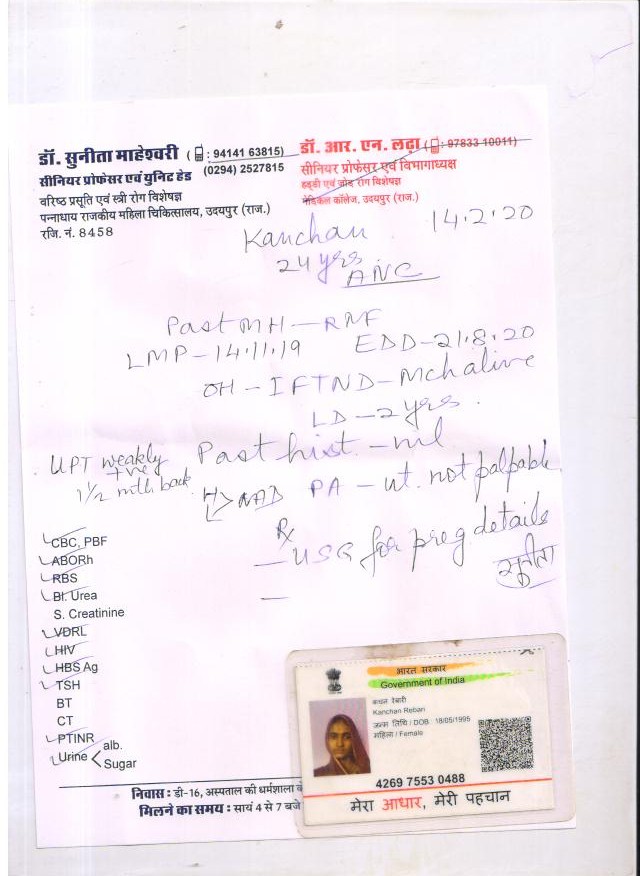 डॉ. सुनीता माहेश्वरी ( : 94141 63815)
(0294) 2527815
सीनियर प्रोफेसर एवं युनिट हेड
वरिष्ठ प्रसूति एवं स्त्री रोग विशेषज्ञ
पन्नाधाय राजकीय महिला चिकित्सालय, उदयपुर (राज.)
रजि. नं. 8458
डॉ. आर. एन. लढ़ा ( : 97833 10011)
सीनियर प्रोफेसर एवं विभागाध्यक्ष
हड्डी एवं जोड़ रोग विशेषज्ञ
मेडिकल कॉलेज, उदयपुर (राज.)
14.2.20
Kanchan
24 yrs
ANC
Past MH - RMF
LMP - 14.11.19 EDD - 21.8.20
OH - IFTND - Mch alive
LD - 2 yrs.
UPT weakly +ve
1½ mth back
Past hist. - nil
NAD PA - ut. not palpable
Rx
- USG for preg details
सुनीता
CBC, PBF
ABORh
RBS
Bl. Urea
S. Creatinine
VDRL
HIV
HBS Ag
TSH
BT
CT
PTINR
Urine < alb.
Sugar
निवास : डी-16, अस्पताल की धर्मशाला के
मिलने का समय : सायं 4 से 7 बजे
भारत सरकार
Government of India
कंचन रेबारी
Kanchan Rebari
जन्म तिथि / DOB : 18/05/1995
महिला / Female
4269 7553 0488
मेरा आधार, मेरी पहचान